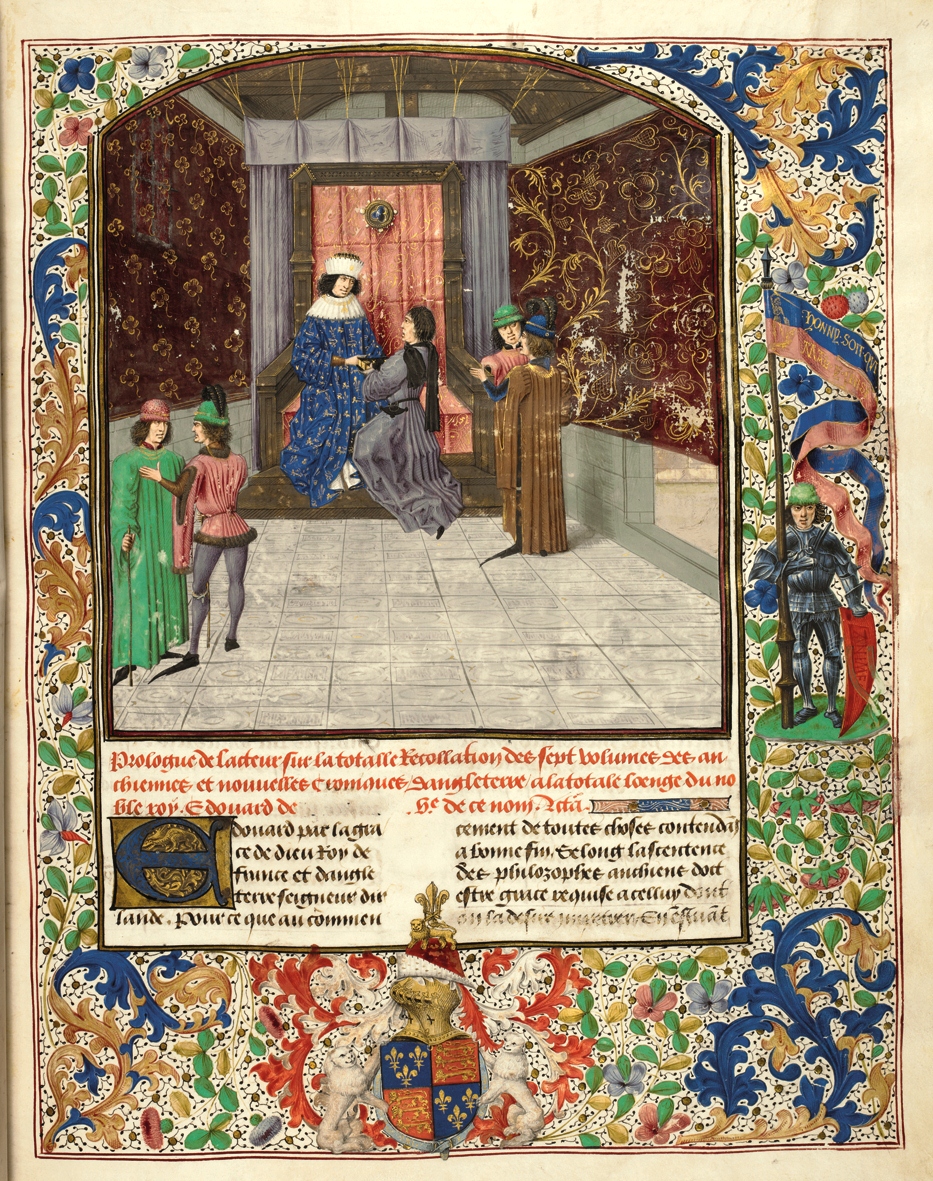 HONNE SOIT QI
Prologue de lacteur sur la totalle Recollation des sept volumes des an
chiennes et nouvelles Croniques dangleterre a la totale loenge du no
ble roy Edouard de
.he de ce nom. Acta
Edouard par la gra
ce de dieu Roy de
france et dangle
terre seigneur dir
lande. pour ce que au commen
cement de toutes choses contendans
a bonne fin, Selong la sentence
des philozophes anchiens doit
estre grace requise a celluy dont